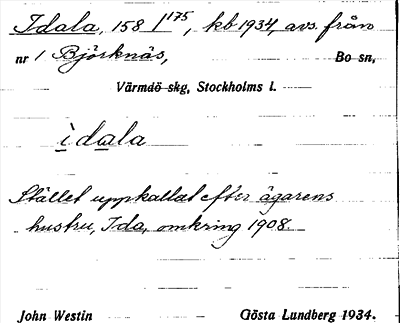 Idala, 158 1/175, kb 1934, avs. från
nr 1 Björknäs, Bo sn,
Värmdö skg, Stockholms l.
idala
Stället uppkallat efter ägarens
hustru, Ida, omkring 1908.
John Westin Gösta Lundberg 1934.